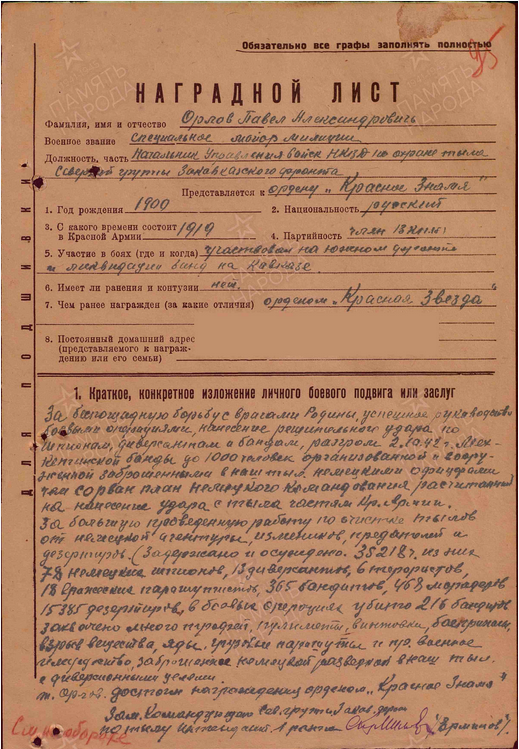 Обязательно все графы заполнять полностью
95
НАГРАДНОЙ ЛИСТ
Фамилия, имя и отчество Орлов Павел Александрович
Военное звание Специальное майор милиции
Должность, часть Начальник Управления войск НКВД по охране тыла
Северной группы Закавказского фронта
Представляется к ордену „Красное Знамя"
1. Год рождения 1900
2. Национальность русский
3. С какого времени состоит в Красной Армии 1919
4. Партийность член ВКП(б)
5. Участие в боях (где и когда) участвовал на южном фронте
и ликвидации банд на Кавказе
6. Имеет ли ранения и контузии нет.
7. Чем ранее награжден (за какие отличия) орденом „Красная Звезда"
8. Постоянный домашний адрес
(представляемого к награж-
дению или его семьи)
ДЛЯ ПОДШИВКИ
1. Краткое, конкретное изложение личного боевого подвига или заслуг
За беспощадную борьбу с врагами Родины, успешное руководство
боевыми операциями, нанесение решительного удара по
шпионам, диверсантам и бандам, разгром
банды до 1000 человек организованной и воору-
женной заброшенными в наш тыл немецкими офицерами
чем сорван план немецкого командования рассчитанный
на нанесение удара с тыла частям Кр. Армии.
За большую проведенную работу по очистке тылов
от немецкой агентуры, изменников, предателей и
дезертиров. (Задержано и осуждено. 35218 ч. из них
78 немецких шпионов, 13 диверсантов, 6 терористов,
18 вражеских парашутистов, 365 бандитов, 468 мародеров
15385 дезертиров, в боевых операциях убито 216 бандитов
захвачено много орудий, пулеметы, винтовки, боеприпасы
взрыв вещества, яды, грузовые парашуты и пр. военное
имущество, заброшенное немецкой разведкой в наш тыл.
с диверсионными целями.
т. Орлов. достоин награждения орденом „Красное Знамя"
Зам. Командующего Сев. группы Закав. фронта
по тылу Интендант 1 ранга (Ермилов).
См на обороте
ПАМЯТЬ НАРОДА